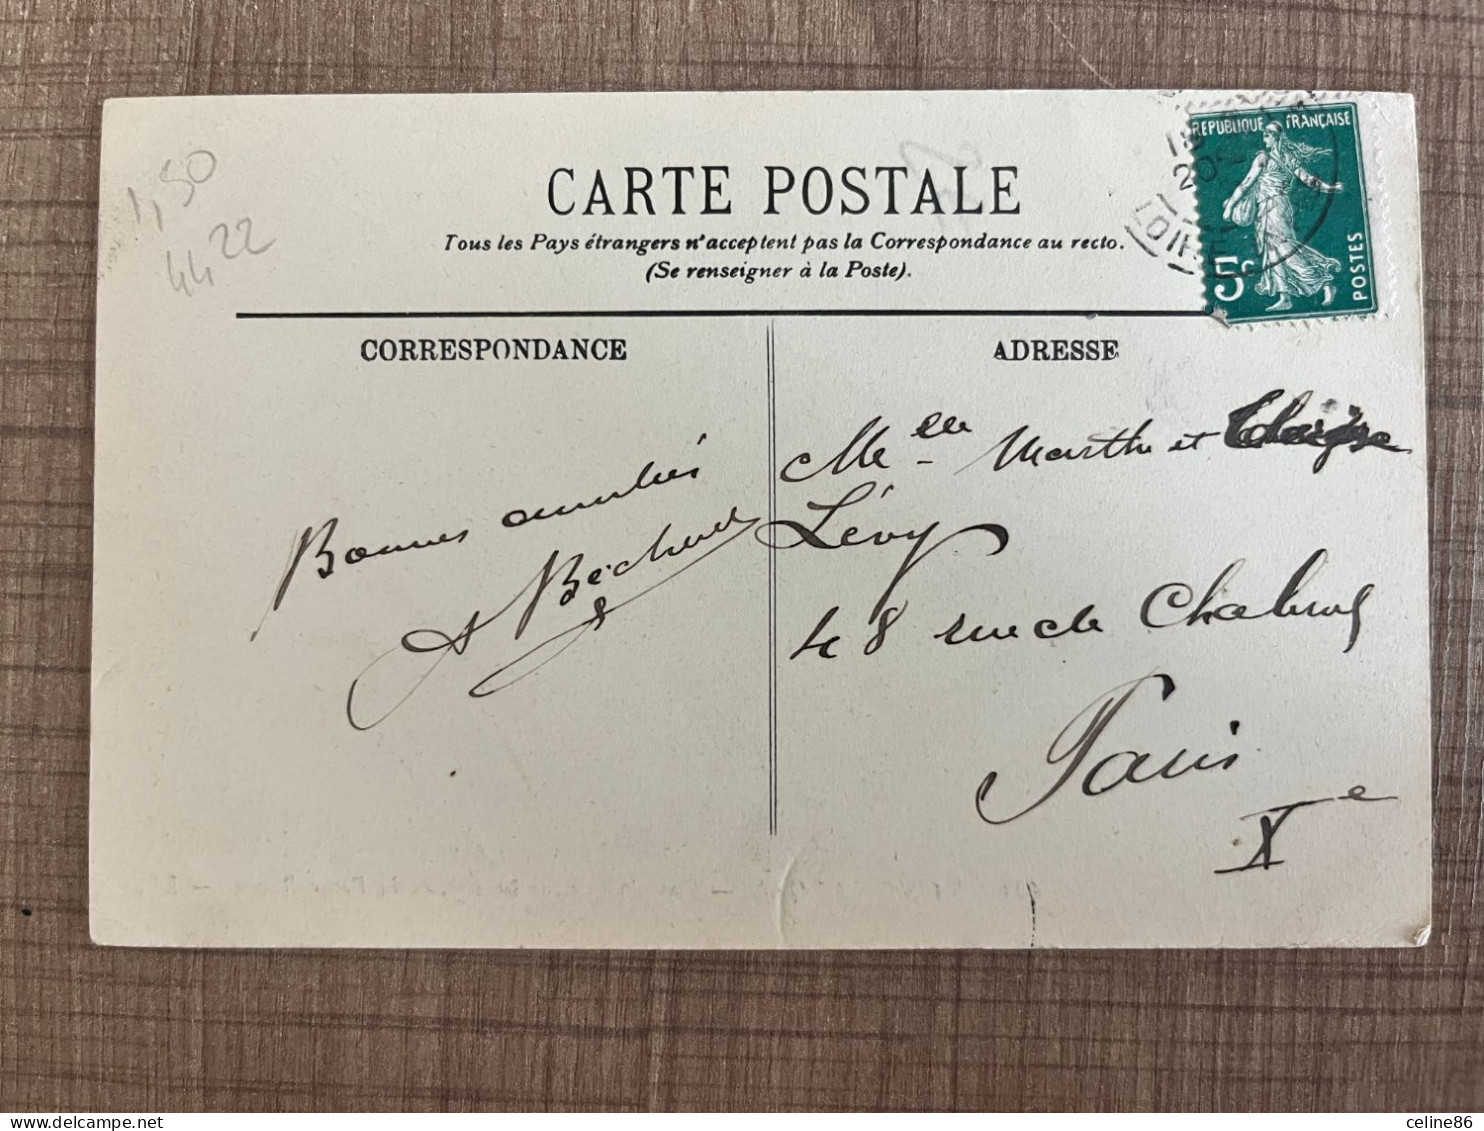 1,50
4422
CARTE POSTALE
Tous les Pays étrangers n'acceptent pas la Correspondance au recto.
(Se renseigner à la Poste).
REPUBLIQUE FRANÇAISE
5c
POSTES
LOIRE
CORRESPONDANCE
Bonnes amitiés
ADRESSE
Melle Marthe et
Lévy
48 rue de Chabrol
Paris
Xe
celine86